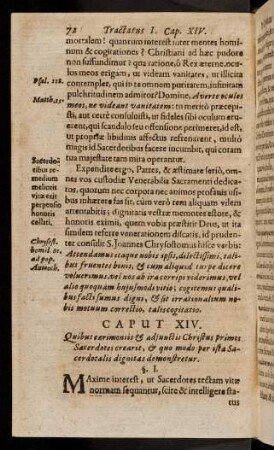 72 Tractatus I. Cap. XIV.
mortalem! quantum interest inter mentes hominum
& cogitationes? Christiani ad hæc pudore
non suffundimur? qua ratione, ô Rex æterne, oculos
meos erigam, ut videam vanitates, ut illicita
contempler, qui in te omnem potitatem, infinitam
pulchritudinem admiror? Domine, Averte oculos
meos, ne videant vanitatem: tu meritò præcepisti,
aut certè consuluisti, ut fideles sibi oculum eruerent,
qui scandalo seu offensione perimeret, id est,
ut propriæ libidini affectûs resecarent, multò
magis id Sacerdotibus facere incumbit, qui coram
tua majestate tam mira operantur.
Psal. 118.
Matth. 25.
Expendite ergo, Patres, & æstimate seriò, omnes
vos custodiæ Venerabilis Sacramenti dedicatos,
quorum nec corpora nec animos profanis usibus
inhærere fas sit, cùm verò rem aliquam vilem
attentabitis; dignitatis vestræ memores estote, &
honoris eximii, quem vobis præstitit Deus, ut ita
similem referre venerationem discatis, id prudenter
consulit S. Joannes Chrysostomus hisce verbis:
Attendamus itaque nobis ipsis, dilectissimi, talibus
fruentes bonis, & cum aliquid turpe dicere
voluerimus, vel nos ab ira corripi viderimus, vel
alio quoquam hujusmodi vitio; cogitemus qualibus
facti sumus digni, & sit irrationalium nobis
motuum correctio, talis cogitatio.
Sacerdotibus
remedium
melioris
vitæ erit
perpensio
honoris
collati.
Chrysost.
homil. 61.
ad pop.
Antioch.
CAPUT XIV.
Quibus cærimoniis & adjunctis Christus primos
Sacerdotes crearit, & quo modo per ista Sacerdotalis
dignitas demonstretur.
§. I.
Maxime interest, ut Sacerdotes rectam vitæ
normam sequantur, scite & intelligere statum